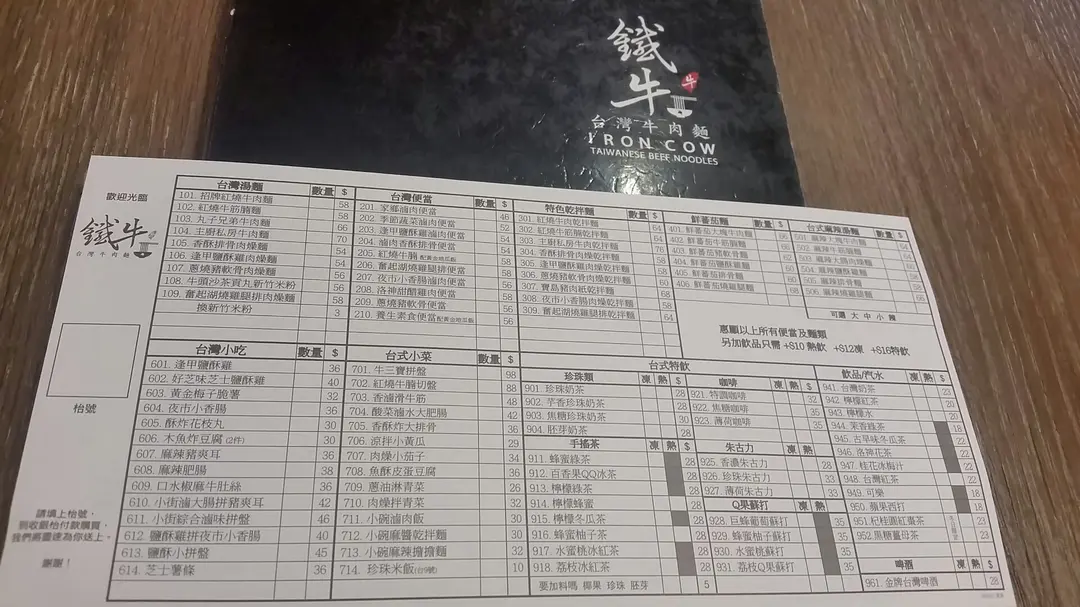 鐵牛
牛
台灣牛肉麵
IRON COW
TAIWANESE BEEF NOODLES
歡迎光臨
鐵牛
台灣牛肉麵
枱號
請填上枱號,
到收銀枱付款購買,
我們將盡速為你送上。
謝謝!
台灣湯麵 數量 $
101. 招牌紅燒牛肉麵 58
102. 紅燒牛筋腩麵 58
103. 丸子兄弟牛肉麵 66
104. 主廚私房牛肉麵 70
105. 香酥排骨肉燥麵 54
106. 逢甲鹽酥雞肉燥麵 54
107. 蔥燒豬軟骨肉燥麵
108. 牛頭沙茶貢丸新竹米粉
109. 奮起湖燒雞腿排肉燥麵 58
換新竹米粉 3
台灣便當 數量 $
201. 家鄉滷肉便當 46
202. 季節蔬菜滷肉便當 52
203. 逢甲鹽酥雞滷肉便當 54
204. 滷肉香酥排骨便當 54
205. 紅燒牛腩 配黃金地瓜飯
206. 奮起湖燒雞腿排便當 58
207. 夜市小香腸滷肉便當
208. 洛神甜醋雞肉便當
209. 蔥燒豬軟骨便當 56
210. 養生素食便當 配黃金地瓜飯 56
特色乾拌麵 數量 $
301. 紅燒牛肉乾拌麵 64
302. 紅燒牛筋腩乾拌麵 64
303. 主廚私房牛肉乾拌麵 76
304. 香酥排骨肉燥乾拌麵
305. 逢甲鹽酥雞肉燥乾拌麵
306. 蔥燒豬軟骨肉燥乾拌麵
307. 寶島豬肉紙乾拌麵
308. 夜市小香腸肉燥乾拌麵 58
309. 奮起湖燒雞腿排肉燥乾拌麵 64
鮮蕃茄麵 數量 $
401. 鮮蕃茄大塊牛肉麵 66
402. 鮮蕃茄牛筋腩麵
403. 鮮蕃茄豬軟骨麵
404. 鮮蕃茄鹽酥雞麵
405. 鮮蕃茄排骨麵
406. 鮮蕃茄燒雞腿麵
台式麻辣湯麵 數量 $
501. 麻辣大塊牛肉麵 64
502. 麻辣牛筋腩麵
503. 麻辣大腸肉燥麵
504. 麻辣鹽酥雞麵
505. 麻辣排骨麵
506. 麻辣燒雞腿麵
可選 大 中 小 辣
惠顧以上所有便當及麵類
另加飲品只需 +$10 熱飲 +$12凍 +$16特飲
台灣小吃 數量 $
601. 逢甲鹽酥雞 36
602. 好芝味芝士鹽酥雞 40
603. 黃金梅子脆薯 32
604. 夜市小香腸 36
605. 酥炸花枝丸 30
606. 木魚炸豆腐 (2件) 30
607. 麻辣豬爽耳 36
608. 麻辣肥腸 38
609. 口水椒麻牛肚絲 36
610. 小街滷大腸拼豬爽耳 42
611. 小街綜合滷味拼盤 46
612. 鹽酥雞拼夜市小香腸 40
613. 鹽酥小拼盤 45
614. 芝士薯條 36
台式小菜 數量 $
701. 牛三寶拼盤 98
702. 紅燒牛腩切盤 88
703. 香滷滑牛筋
704. 酸菜滷水大肥腸 48
705. 香酥炸大排骨
706. 涼拌小黃瓜 29
707. 肉燥小茄子 34
708. 魚酥皮蛋豆腐 36
709. 蔥油淋青菜 26
710. 肉燥拌青菜 32
711. 小碗滷肉飯 30
712. 小碗麻醬乾拌麵 30
713. 小碗麻辣擔擔麵 32
714. 珍珠米飯 10
台式特飲
珍珠類 凍 熱 $
901. 珍珠奶茶 28
902. 芋香珍珠奶茶
903. 焦糖珍珠奶茶
904. 胚芽奶茶 28
手搖茶 凍 熱 $
911. 蜂蜜綠茶 28
912. 百香果QQ冰茶 28
913. 檸檬綠茶 28
914. 檸檬蜂蜜 28
915. 檸檬冬瓜茶 28
916. 蜂蜜柚子茶 28
917. 水蜜桃冰紅茶 28
918. 荔枝冰紅茶 28
要加料嗎 椰果 珍珠 胚芽 5
咖啡 凍 熱 $
921. 特調咖啡 32
922. 焦糖咖啡 35
923. 薄荷咖啡 35
朱古力 凍 熱 $
925. 香濃朱古力 28
926. 珍珠朱古力 33
927. 薄荷朱古力
Q果蘇打 凍 熱 $
928. 巨蜂葡萄蘇打 35
929. 蜂蜜柚蘇打 35
930. 水蜜蘇打 35
931. 荔枝Q果蘇打 35
飲品/汽水 凍 熱 $
941. 台灣奶茶 23
942. 檸檬紅茶 20
943. 檸檬水 20
944. 茉香綠茶 18
945. 古早味冬瓜茶 22
946. 洛神花茶
947. 桂花冰梅汁 22
948. 台灣紅茶
949. 可樂 18
950. 蘋果西打
951. 杞桂圓紅棗茶 23
952. 黑糖薑母茶 23
啤酒 凍 熱 $
961. 金牌台灣啤酒 28